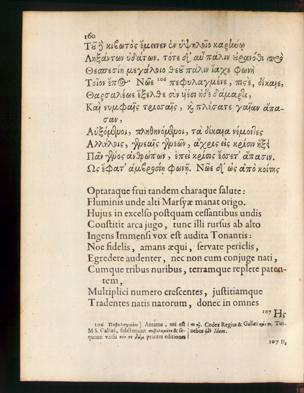 160
Τοῦ δὴ κιβωτὸς ἔμεινεν ἐν ὑψηλοῖο καρήνῳ
Ληξάντων ὑδάτων. τότε δ' αὖ πάλιν
Θεσπεσίη μεγάλοιο θεοῦ πάλιν ἴαχε φωνὴ
Τοῖον ἔπος· Νῶε 106 πεφυλαγμένε, πιστὲ, δίκαιε,
Θαρσαλέως ἔξελθε σὺν υἱέσι καὶ δάμαρτι,
Καὶ νύμφαις τρισσαῖς, καὶ πλήσατε γαῖαν ἅπα-
σαν,
Αὐξόμενοι, πληθυνόμενοι, τὰ δίκαια νέμοντες
Ἀλλήλοις, γενεαῖς γενεῶν, ἄχρις εἰς κρίσιν ἥξει
Πᾶν γένος ἀνθρώπων, ἐπεὶ κρίσις ἔσσετ' ἅπασιν.
Ὣς ἔφατ' ἀμβροσίη φωνή. Νῶε δ' ὡς ἀπὸ κοίτης
Optataque frui tandem charaque salute:
Fluminis unde alti Marsyæ manat origo.
Hujus in excelso postquam cessantibus undis
Constitit arca jugo, tunc illi rursus ab alto
Ingens Immensi vox est audita Tonantis:
Noe fidelis, amans æqui, servate periclis,
Egredere audenter, nec non cum conjuge nati,
Cumque tribus nuribus, terramque replete paten-
tem,
Multiplici numero crescentes, justitiamque
Tradentes natis natorum, donec in omnes
107 Ἡς
106 Πεφυλαγμένε] Antimo, uti est
M S. Codex Regius &
107 B,